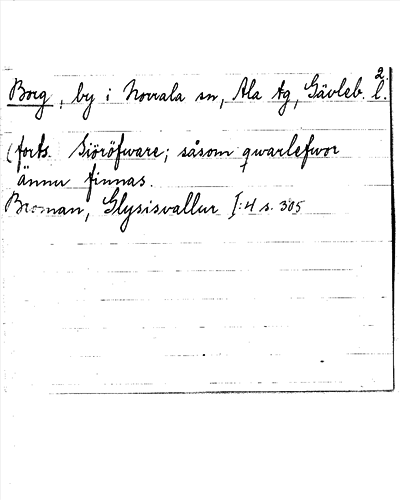 2.
Borg, by i Norrala sn, Ala tg, Gävleb. l.
(forts. Siöröfware; såsom qwarlefwor
ännu finnas.
Broman, Glysisvallur I:4 s. 305